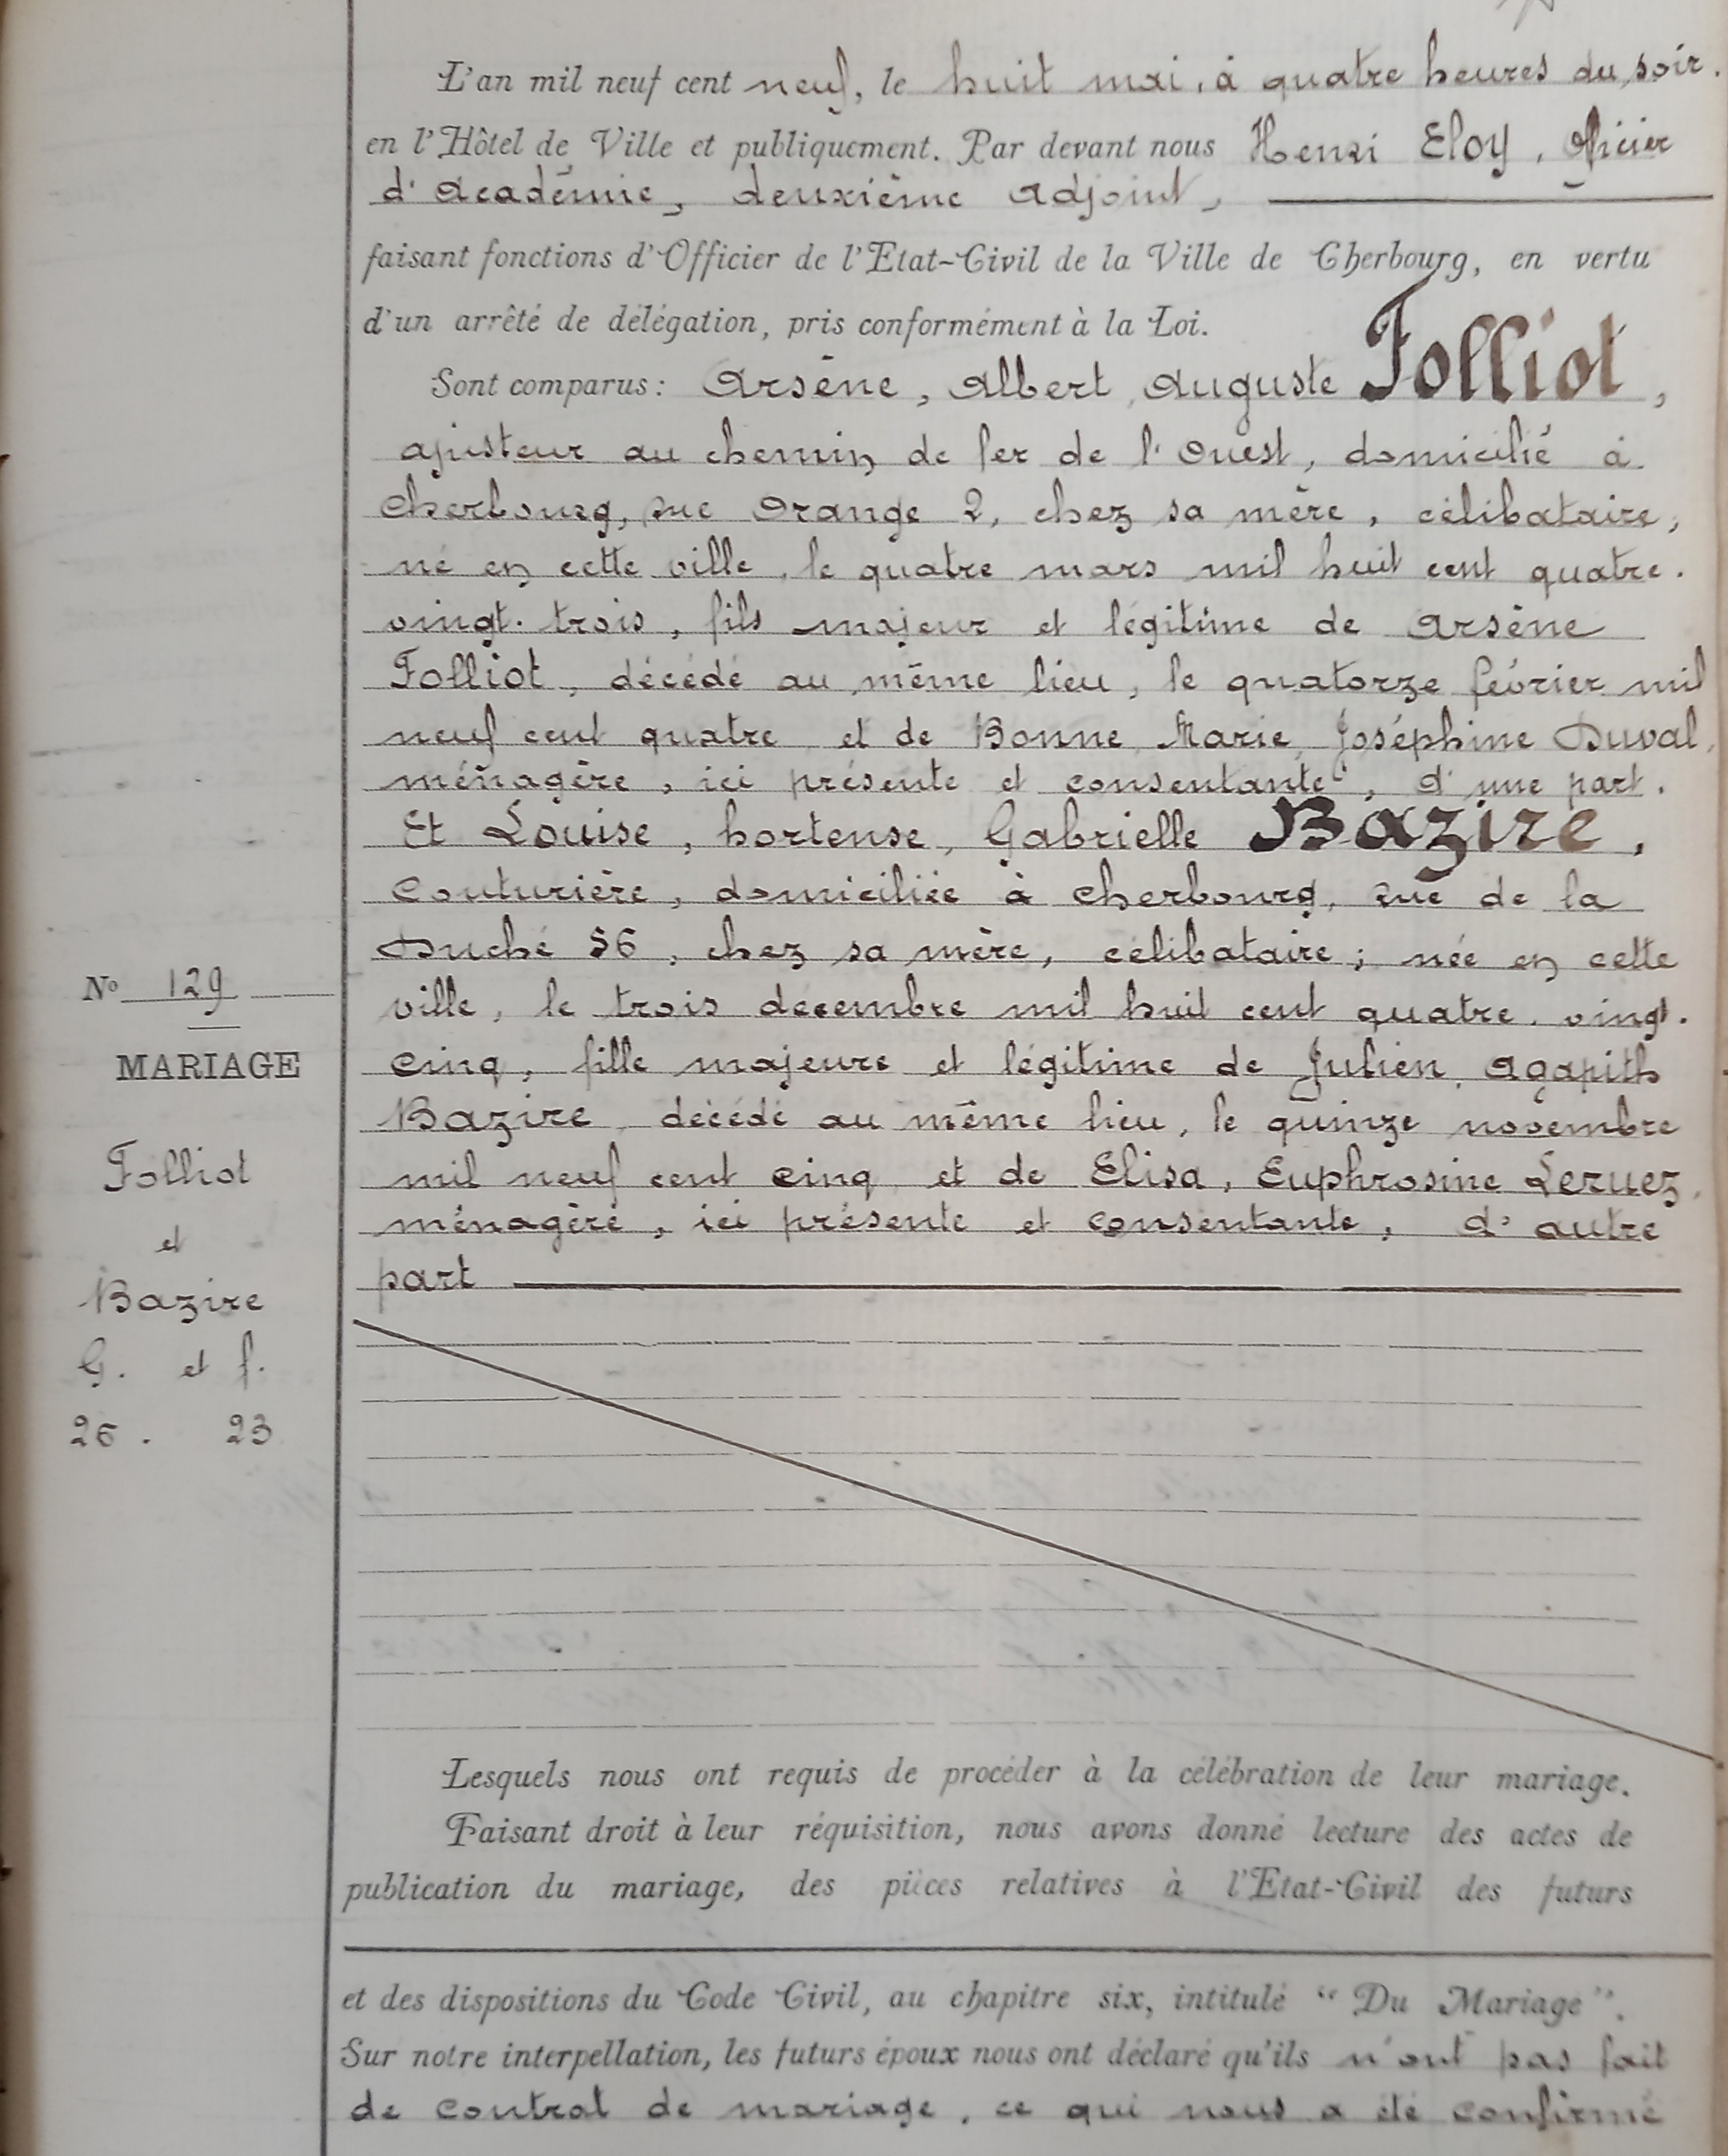 L'an mil neuf cent neuf, le huit mai, à quatre heures du soir.
en l'Hôtel de Ville et publiquement. Par devant nous Henri Eloy, Officier
d'Académie, deuxième Adjoint,
faisant fonctions d'Officier de l'Etat-Civil de la Ville de Cherbourg, en vertu
d'un arrêté de délégation, pris conformément à la Loi.
Sont comparus: Arsène, Albert, Auguste Folliot,
ajusteur au chemin de fer de l'Ouest, domicilié à
Cherbourg, rue Orange 2, chez sa mère, célibataire,
né en cette ville, le quatre mars mil huit cent quatre-
vingt-trois, fils majeur et légitime de Arsène
Folliot, décédé au même lieu, le quatorze février mil
neuf cent quatre et de Bonne, Marie, Joséphine Duval,
ménagère, ici présente et consentante, d'une part.
Et Louise, hortense, Gabrielle Bazire,
Couturière, domiciliée à Cherbourg, rue de la
Duché 56, chez sa mère, célibataire; née en cette
ville, le trois décembre mil huit cent quatre-vingt-
cinq, fille majeure et légitime de Julien, Agapith
Bazire, décédé au même lieu, le quinze novembre
mil neuf cent cinq et de Elisa, Euphrosine Leruez,
ménagère, ici présente et consentante, d'autre
part
No 129
MARIAGE
Folliot
et
Bazire
G. et f.
26. 23
Lesquels nous ont requis de procéder à la célébration de leur mariage.
Faisant droit à leur réquisition, nous avons donné lecture des actes de
publication du mariage, des pièces relatives à l'Etat-Civil des futurs
et des dispositions du Code Civil, au chapitre six, intitulé “Du Mariage”.
Sur notre interpellation, les futurs époux nous ont déclaré qu'ils n'ont pas fait
de contrat de mariage, ce qui nous a été confirmé